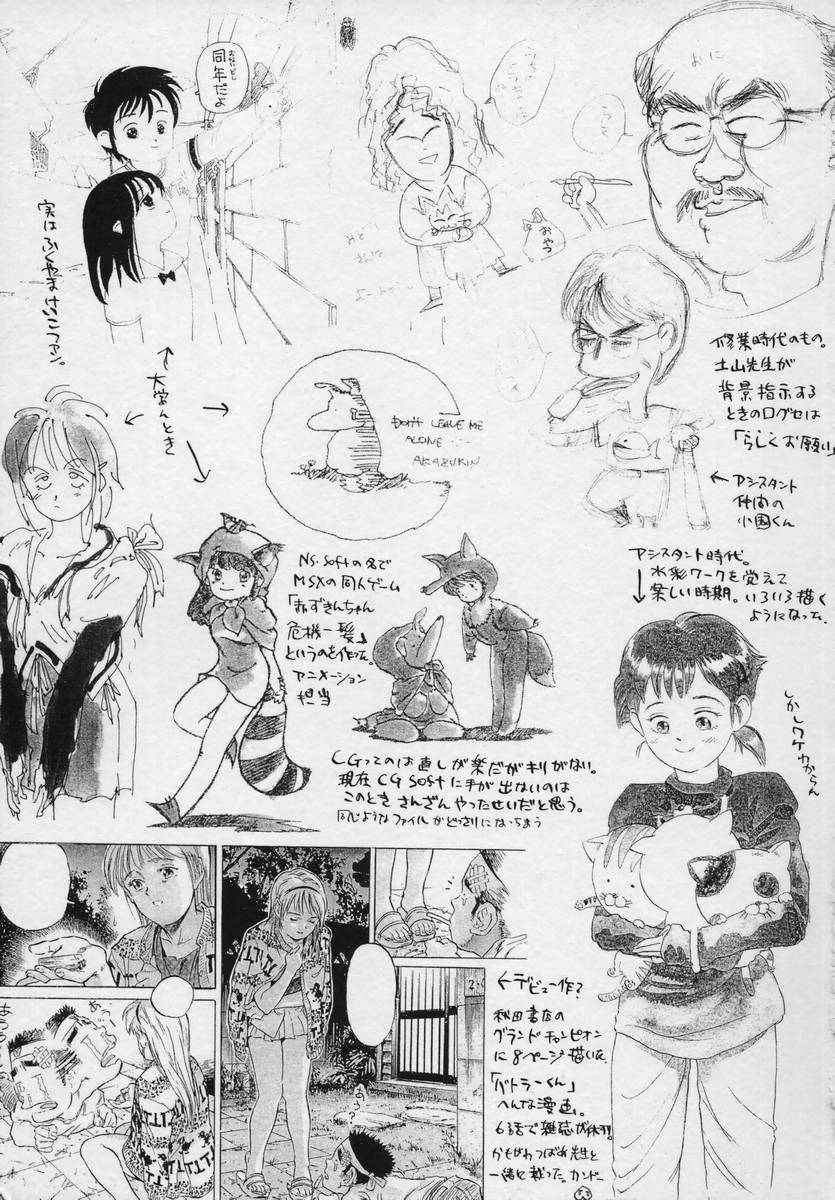 おないどし
同年だよ
実はふくやまけいこファン。
おに
おやつ
修業時代のもの。
土山先生が
背景指示する
ときのログセは
「らしくお願い」
←アシスタント
仲間の
小園くん
↑
大学んとき
DON'T LEAVE ME
ALONE ...
AKAZUKIN
NS-Softの名で
MSXの同人ゲーム
「赤ずきんちゃん
危機一髪」
というのを作った。
アニメーション
担当
アシスタント時代。
水彩ワークを覚えて
楽しい時期。いろいろ描く
ようになった。
しかしワケわからん
CGってのは直しが楽だがキリがない。
現在CG Softに手が出ないのは
このとき さんざんやったせいだと思う。
同じようなファイルがどっさりになっちまう
←デビュー作?
秋田書店の
グランドチャンピオン
に8ページ描いた。
「バトラーくん」
へんな漫画。
6話で雑誌が休刊。
かもがわつばめ先生と
一緒に載った。カンドー
あう?